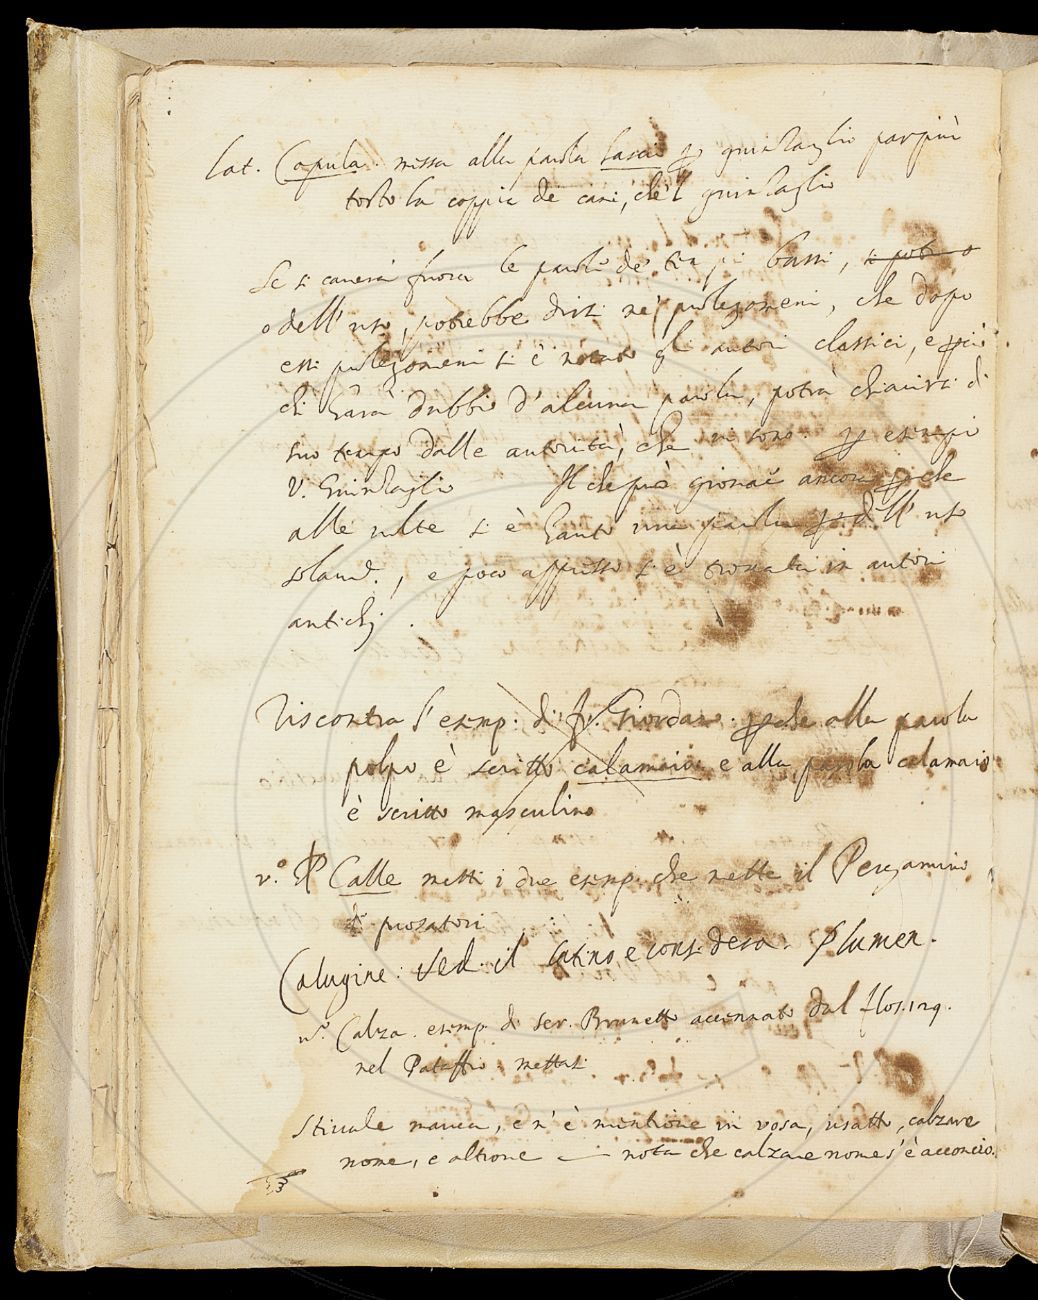 lat. Copula. messa alla parola lascio p guinzaglio par più
tosto la coppia de cani, che'l guinzaglio
Se si caverà fuora le parole de' tempi bassi,
o dell'uso, potrebbe dirsi ne' prolegomeni, che dopo
essi prolegomeni si è notato gli autori classici, e p ciò
chi harà dubbio d'alcuna parola, potrà chiarirsi di
suo tempo dalle autorità, che vi sono. p esempio
V. Guinzaglio Il che può giovar ancora p che
alle volte si è hauto una parola p dell'uso
solam., e poco appresso si è trovata in autori
antichi.
Riscontra l'esemp. di fr. Giordano. p che alla parola
polpo è scritto calamaio e alla parola calamaio
è scritto masculino
v.o Calle metti i due esemp. che mette il Pergamino
prosatori
Calugine: Ved. il latino e considera. Plumen.
v.o Calza. esemp. di ser. Brunetto accennato dal flos. inq.
nel Pataffio mettasi
Stivale manca, e n'è mentione in vosa, usatto, calzare
nome, e altrove — nota che calzare nome s'è acconcio.